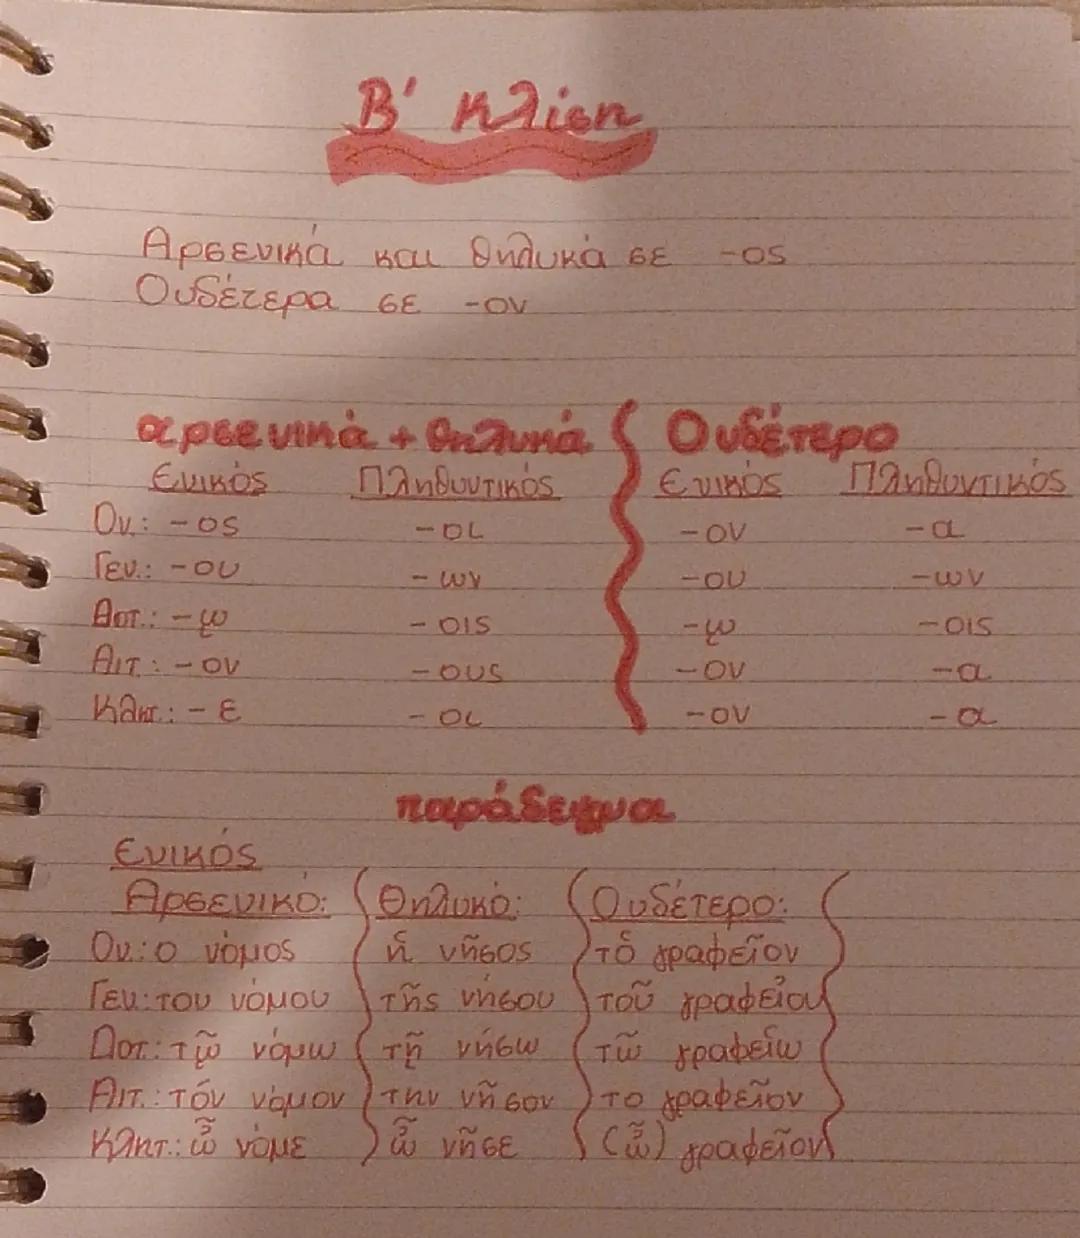 Β' Κλίση
Αρσενικά και θηλυκά σε -ος
Ουδέτερα σε -ον
αρσενικά + θηλυκά Ουδέτερο
Ενικός Πληθυντικός Ενικός Πληθυντικός
Ον.: -ος -οι -ον -α
Γεν.: -ου -ων -ου -ων
Δοτ.: -ῳ -οις -ῳ -οις
Αιτ.: -ον -ους -ον -α
Κλητ.: -ε -οι -ον -α
παράδειγμα
Ενικός
Αρσενικό: Θηλυκό: Ουδέτερο:
Ον.: ο νόμος ἡ νῆσος τό γραφεῖον
Γεν.: του νόμου τῆς νήσου τοῦ γραφείου
Δοτ.: τῷ νόμω τῇ νήσω τῶ γραφείω
Αιτ.: τόν νόμον την νῆσον το γραφεῖον
Κλητ.: ὦ νόμε ὦ νῆσε (ὦ) γραφεῖον